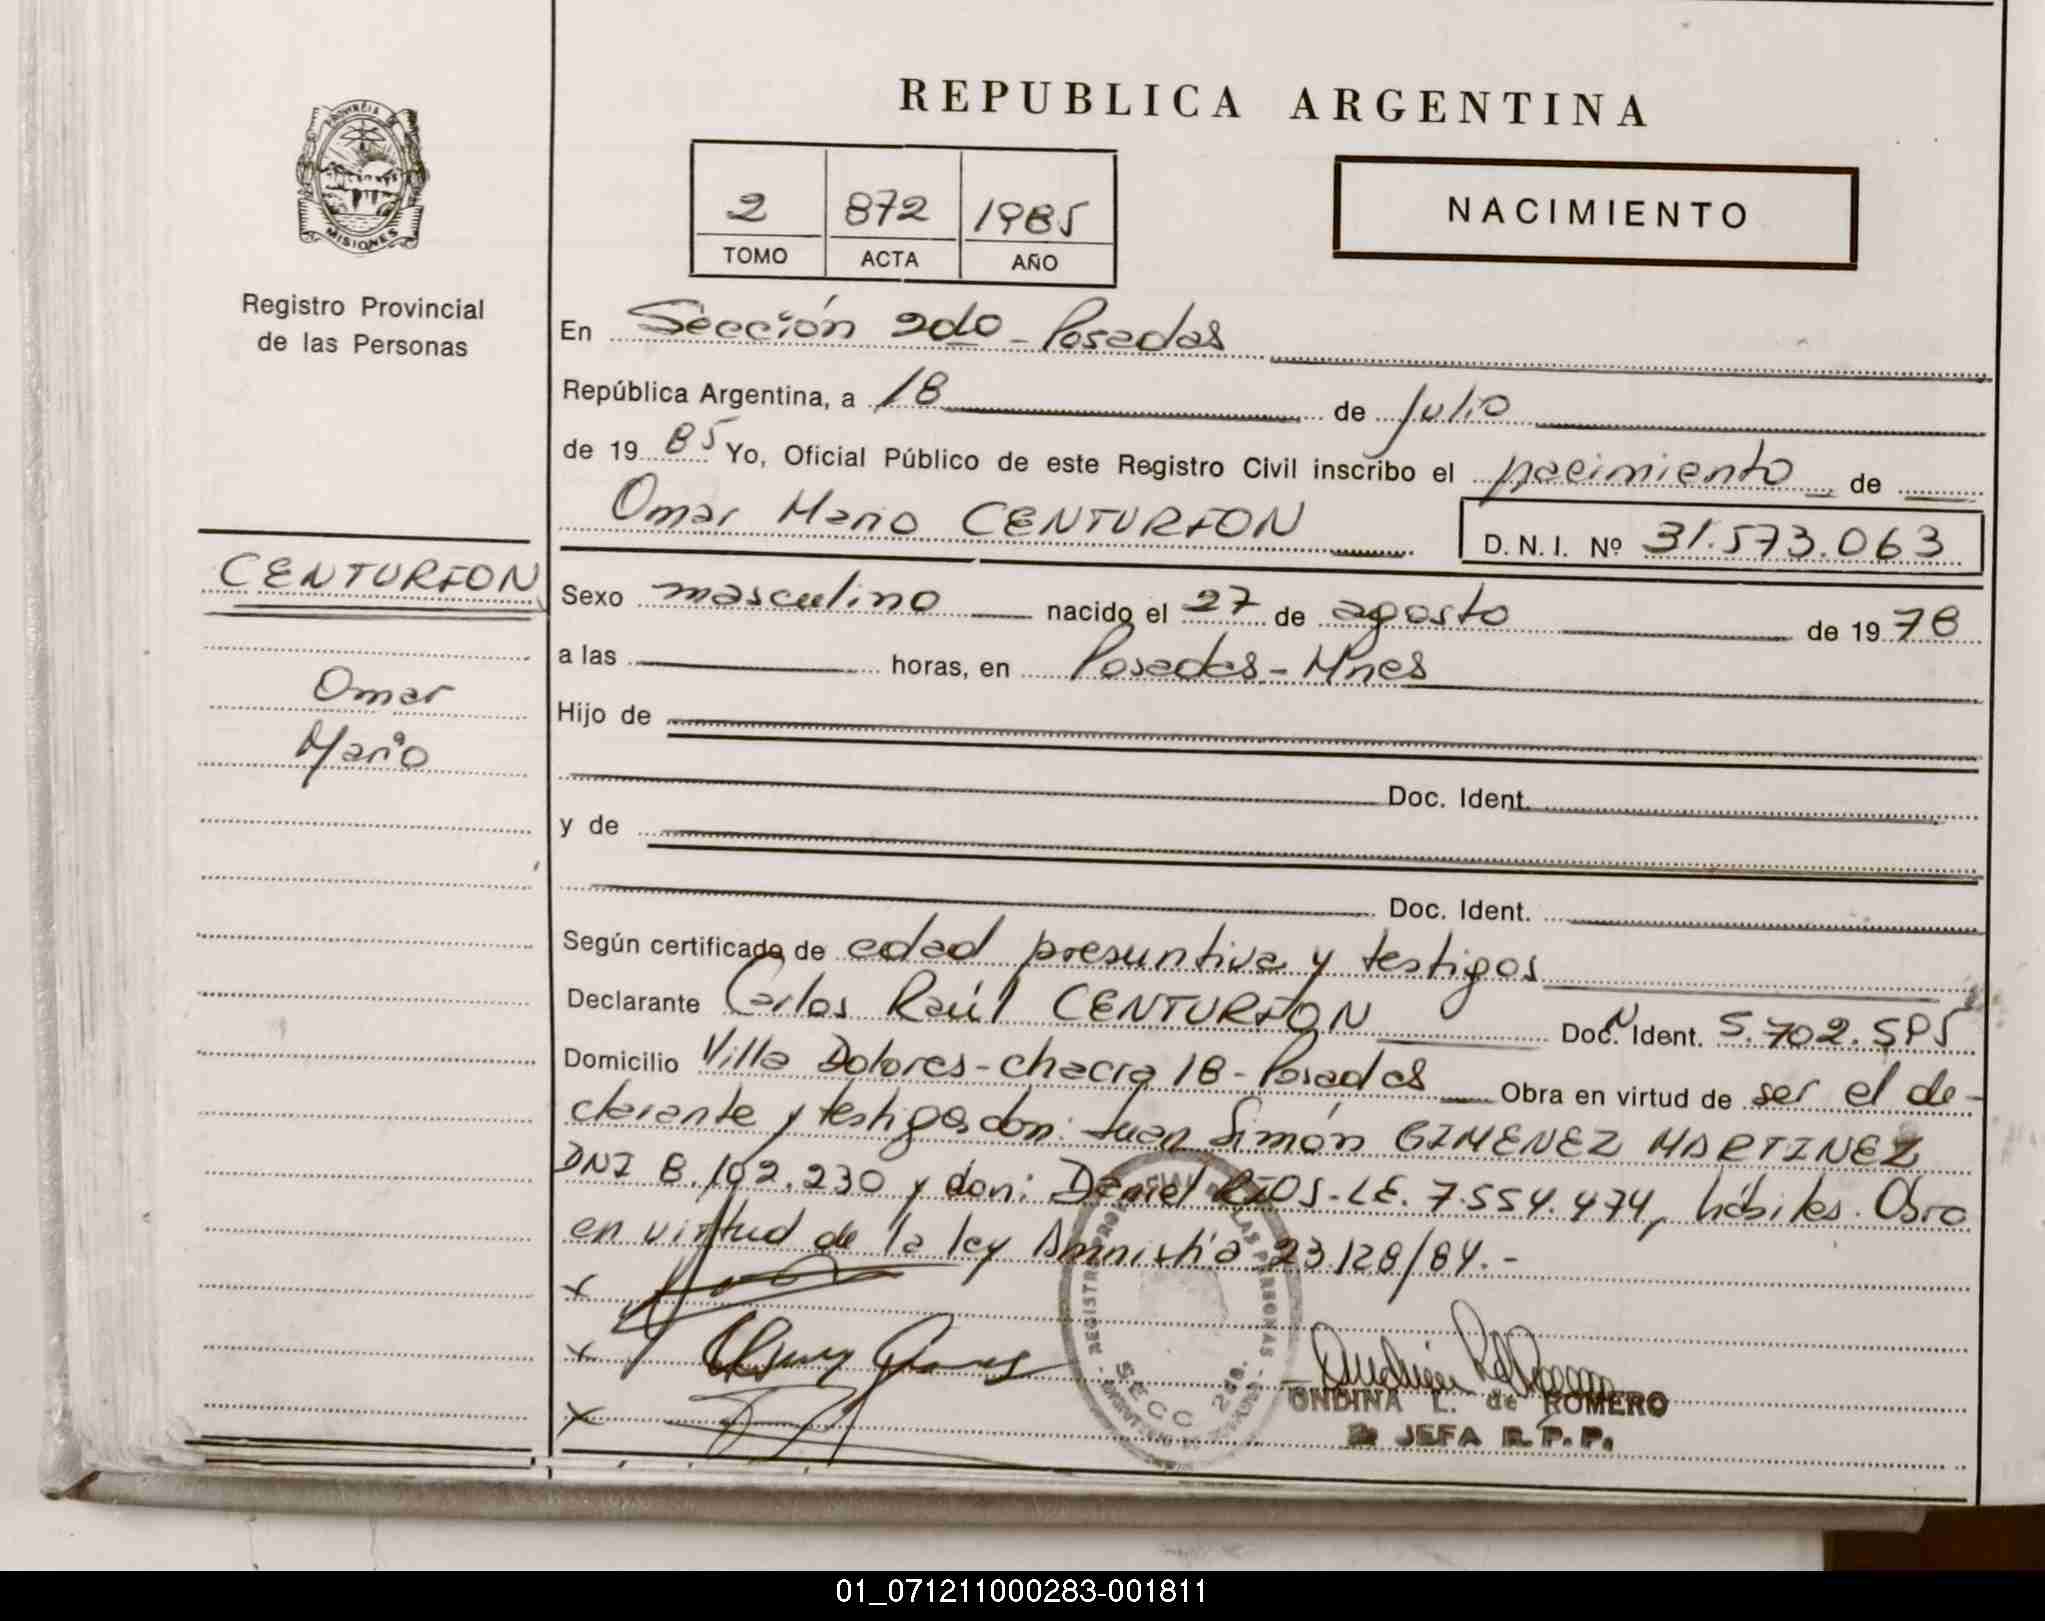 REPUBLICA ARGENTINA
PROVINCIA DE
MISIONES
Registro Provincial
de las Personas
2 872 1985
TOMO ACTA AÑO
NACIMIENTO
En Sección 2da - Posadas
República Argentina, a 18 de Julio
de 1985 Yo, Oficial Público de este Registro Civil inscribo el nacimiento de
Omar Mario CENTURION D. N. I. Nº 31.573.063
CENTURION
Omar
Mario
Sexo masculino nacido el 27 de agosto de 1978
a las horas, en Posadas - Mnes
Hijo de
Doc. Ident.
y de
Doc. Ident.
Según certificado de edad presuntiva y testigos
Declarante Carlos Raúl CENTURION Doc. Ident. 5.702.
Domicilio Villa Dolores - chacra 18 - Posadas Obra en virtud de ser el de-
clarante y testigos don: Juan Simón GIMENEZ MARTINEZ
DNI 8.102.230 y don: Daniel RIOS - LE. 7.554.474, hábiles. Obro
en virtud de la ley Amnistía 23128/84.-
SECC 2da.
ONDINA L. de ROMERO
JEFA R. P. P.
01_071211000283-001811